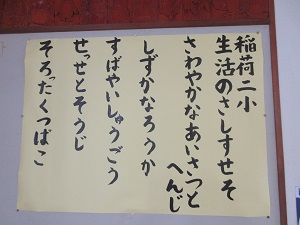 稲荷二小
生活のさしすせそ
さわやかなあいさつと
へんじ
しずかなろうか
すばやいしゅうごう
せっせとそうじ
そろったくつばこ